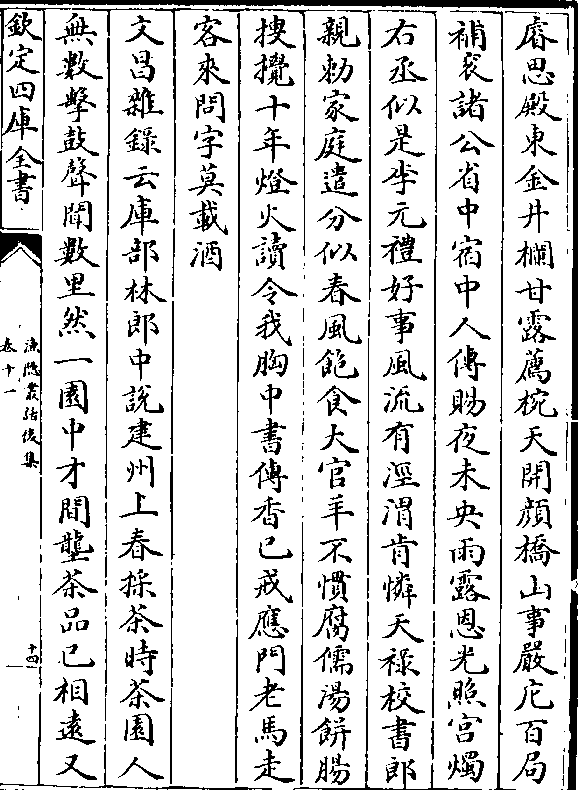 睿思殿東金井欄甘露薦椀天開顔橋山事嚴庀百局
補衮諸公省中宿中人傳賜夜未央雨露恩光照宫燭
右丞似是李元禮好事風流有涇渭肯憐天祿校書郎
親勅家庭遣分似春風飽食大官羊不慣腐儒湯餅腸
搜攪十年燈火讀令我胸中書傳香已戒應門老馬走
客來問字莫載酒
文昌雜錄云庫部林郎中説建州上春採茶時茶園人
無數擊鼓聲聞數里然一園中才間壟茶品已相遠又
欽定四庫全書
漁隱叢話後集
卷十一
十四